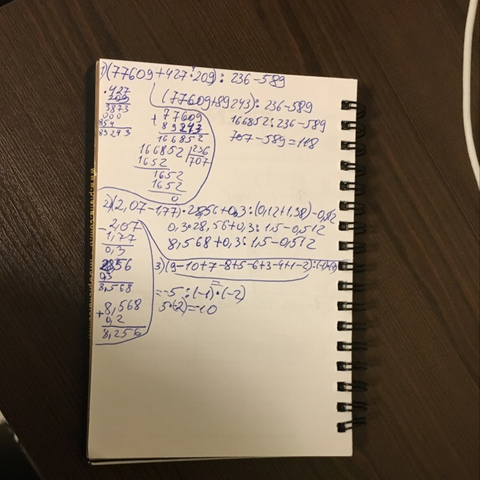 1)(77609+427·209): 236-589
427
209
3873
000
854
89243
(77609+89243): 236-589
166852:236-589
707-589=118
77609
+ 89243
166852
166852 236
1652 707
1652
1652
0
2)(2,07-1,77)·28,56+0,3:(0,12+1,38)-0,512
0,3·28,56+0,3:1,5-0,512
8,568+0,3:1,5-0,512
-2,07
1,77
0,3
2856
03
8,568
+ 8,568
0,2
8,256
3)(9-10+7-8+5-6+3-4+1-2):(-1)·(-2)
=-5:(-1)·(-2)
5·(-2)=-10